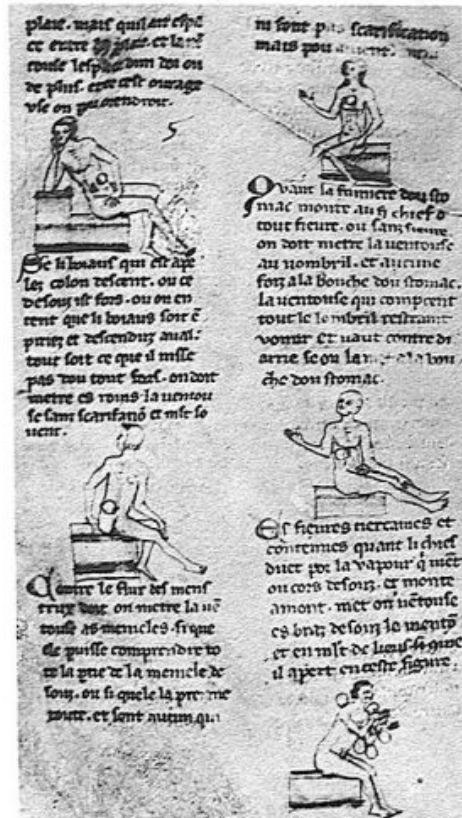 plaie. mais quil ait espa
ce entre la plaie. et la vē
touse lespace dun doi ou
de plus. et ce est ourage
vse on prendroit.
Se li boiaus qui est ape
lez colon descent. ou ce
desouz ist fors. ou on en
tent que li boiaus soit ē
piriez et descenduz aual.
tout soit ce que il nisse
pas dou tout fors. on doit
metre es rains la uentou
se sanz scarificatiō et mlt so
uent.
Contre le flux des mens
truz doit on metre la uē
touse as memeles. si que
ele puisse comprendre to
te la ptie de la memele de
souz. ou si que le la preme
toute. et sont aucun qui
ni font pas scarification
mais
Quant la fumiere dou sto
mac monte au chief o
tout fieure. ou sanz fieure
on doit metre la uentouse
au nombril. et aucune
foiz a la bouche dou stomac.
la uentouse qui comprent
tout le lombril restraint
vomir et uaut contre di
arrie se on la met a la bou
che dou stomac.
Es fieures tiercaines et
contenues quant li chief
duet por la vapour q uiēt
ou cors desouz. et monte
amont. met on uētouse
es braz desouz le mentō
et en mlt de lieus si que
il apert en ceste figure.